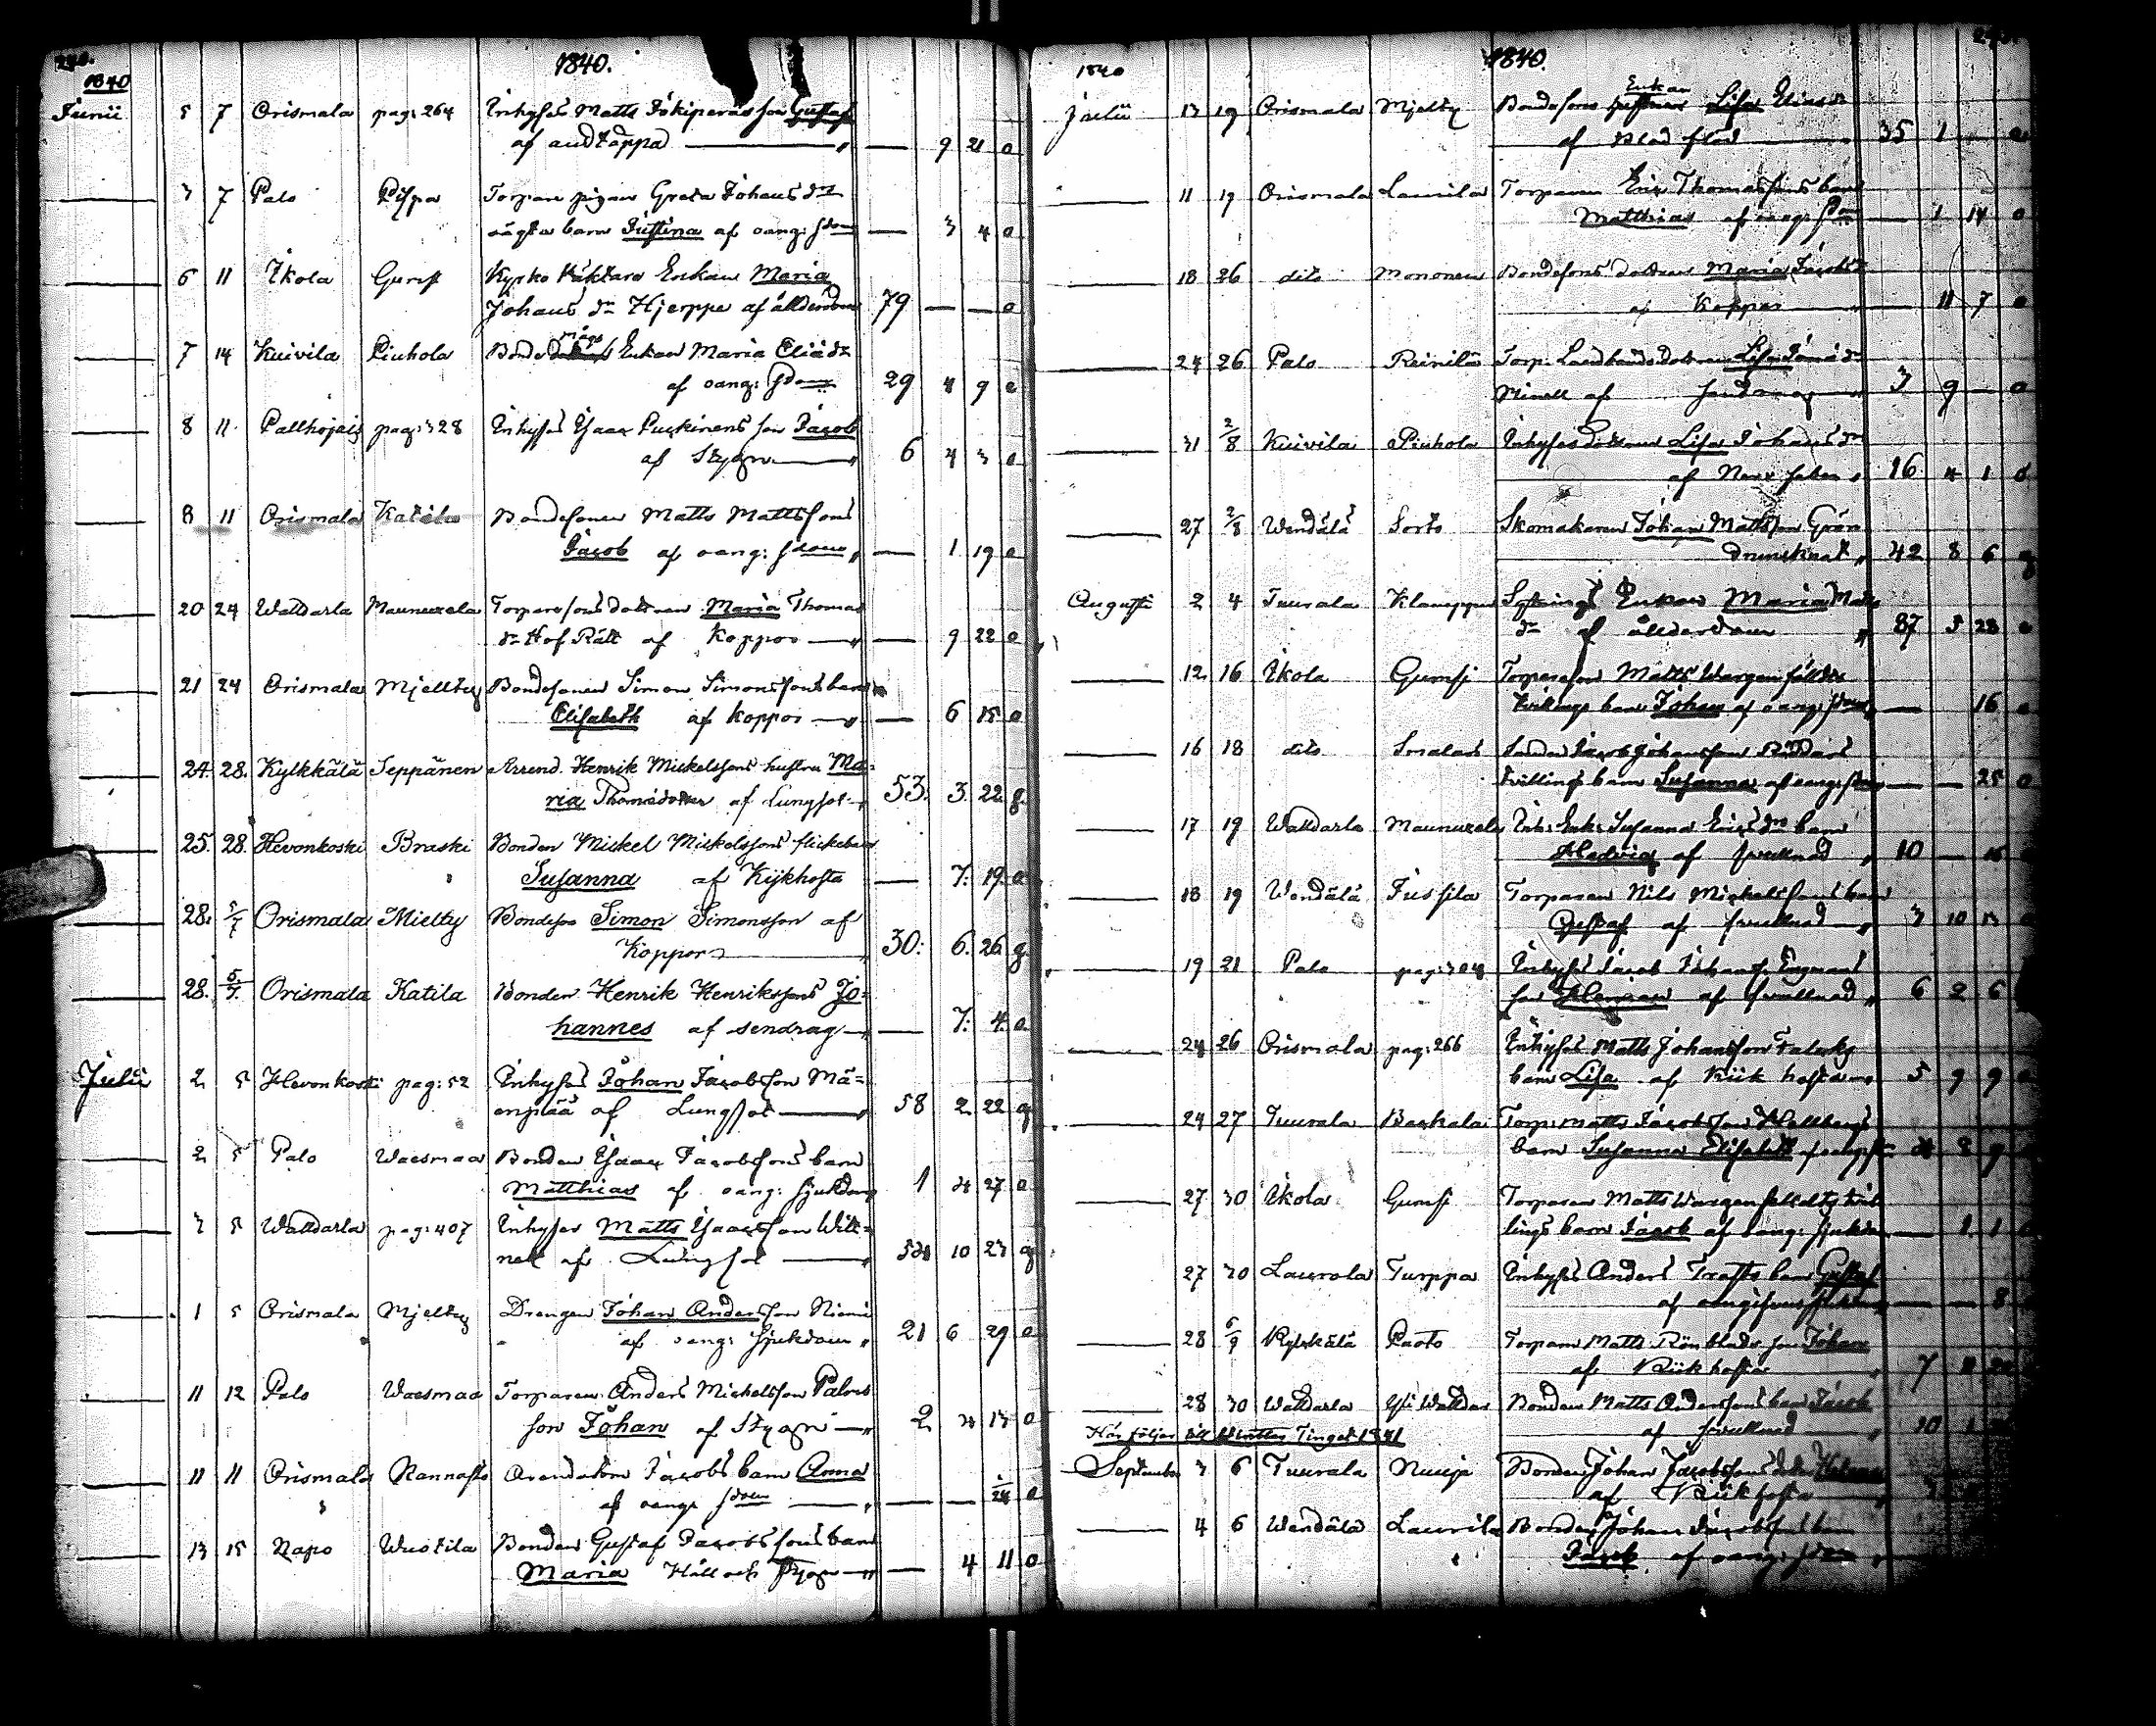 1840
1840.
Junii 5 7 Orismala pag: 264 Inhyses Matts Jokiperäs son Gustaf
af andtäppa — 9 21 o
3 7 Palo Pispa Torpare pigan Greta Johans dr
oägta barn Justina af oang: sdom — 3 4 o
6 11 Ikola Gumsi Kyrko Enkan Maria
Johans dr Hjerppe af ålderdom 79 — — o
7 14 Kuivila Piuhola Bonde Enkan Maria Eliædr
af oang: sdom 29 4 9 o
8 11 Pallhojais pag: 328 Inhyses Isaac Purkinens son Jacob
af Stygn 6 4 3 o
8 11 Orismala Katila Bondesonen Matts Mattssons
Jacob af oang: sdom — 1 19 o
20 24 Walldarla Maunuxela Torpare sons dottren Maria Thomas
dr Hof Rätt af Koppor — 9 22 o
21 24 Orismala Mjelty Bondesonen Simon Simonssons barn
Elisabeth af Koppor — 6 15 o
24. 28. Kylkkälä Seppänen Arrend. Henrik Mickelssons hustru Ma=
ria Thomædotter af Lungsot 53. 3. 22. g.
25. 28. Hevonkoski Braski Bonden Mickel Mickelssons flickebarn
Susanna af Kikhosta — 7. 19. o
28. 5/7 Orismala Mielty Bondeson Simon Simonsson af
Koppor 30: 6. 26. g.
28. 5/7. Orismala Katila Bonden Henrik Henrikssons Jo=
hannes af sendrag — 7: 4. o.
Julii 2 5 Hevonkoski pag: 52 Inhyses Johan Jacobsson Mä=
enpää af Lungsot 58 2 22 g
2 5 Palo Waismaa Bonden Isaac Jacobssons barn
Matthias af oang: sjukdom 1 4 27 o
3 5 Walldarla pag: 407 Inhyses Matts Isaacsson Wik=
nell af Lungsot 54 10 23 g
1 5 Orismala Mjelty Drengen Johan Andersson Niemi
af oang: sjukdom 21 6 29 o
11 12 Palo Waismaa Torparen Anders Michelsson Palos
son Johan af Stygn 2 4 13 o
11 11 Orismala Nannasto Arendatorn Jacobs barn Anna
af oang: sdom — — 1/24 o
13 15 Napo Wuotila Bonden Gustaf Jacobssons barn
Maria Håll och Stygn — 4 11 o
1840
1840.
Enkan
Julii 13 19 Orismala Mjelty Bondesons Lisa Eliædr
af Blod flod 35 1 — o
11 19 Orismala Laurila Torparen Eric Thomassons barn
Matthias af oang: sdom — 1 14 o
18 26 dito Mononen Bondesons dottren Maria Jacobsdr
af Koppor — 11 7 o
24 26 Palo Reinilä Torp. Landbonds dottren Lisa
af Sendrag 3 9 — o
31 2/8 Kuivila Piuhola Inhyses dottren Lisa Johans dr
af Nerv feber 16 4 1 o
27 2/8 Wendälä Sorto Skomakaren Johan Mattsson Grön
Drunknat 42 8 6 g
Augusti 2 4 Tuurala Klemppu Enkan Maria Matts
dr af ålderdom 87 5 28 o
12 16 Ikola Gumsi Torpareson Matts Wargen
tvillings barn Johan af oang: sdom — 16 o
16 18 dito Smalas Jacob Johansson Riddars
tvillings barn Susanna af oang: sdom — — 25 o
17 19 Walldarla Maunuxela Inh: Enk: Susanna Ericsdrs barn
Hedvig af svullnad 10 — 15
18 19 Wendälä Jussila Torparen Nils Mickelssons barn
Gustaf af svullnad 3 10 13
19 21 Palo pag: 304 Inhyses Jacob Johanss. Engmans
son Henric af svullnad 6 2 6
24 26 Orismala pag: 266 Inhyses Matts Johansson
barn Lisa af Kikhosta 5 9 9
24 27 Tuurala Backala Torp: Matts Jacobsson Hallbergs
barn Susanna Elisabeth
27 30 Ikola Gumsi Torparen Matts Wargen tvil
lings barn Jacob af oang: sjukdom — 1. 1
27 30 Laurola Turppa Inhyses Anders Trasts barn Gustaf
af oangifven sjukdom — — 8
28 6/9 Kylkälä Paoto Torparen Matts Rönblads son Johan
af Kikhosta 7 11
28 30 Walldarla Yli Walldar Bonden Matts Anderssons barn Jacob
af svullnad 10 1
Här följer till Winter Tinget 1841
September 3 6 Tuurala Nuuja Bonden Johan Jacobssons dotter Helena
af Kikhosta
4 6 Wendälä Laurila Bonden Johan Jacobssons barn
Jacob af oang: sdom